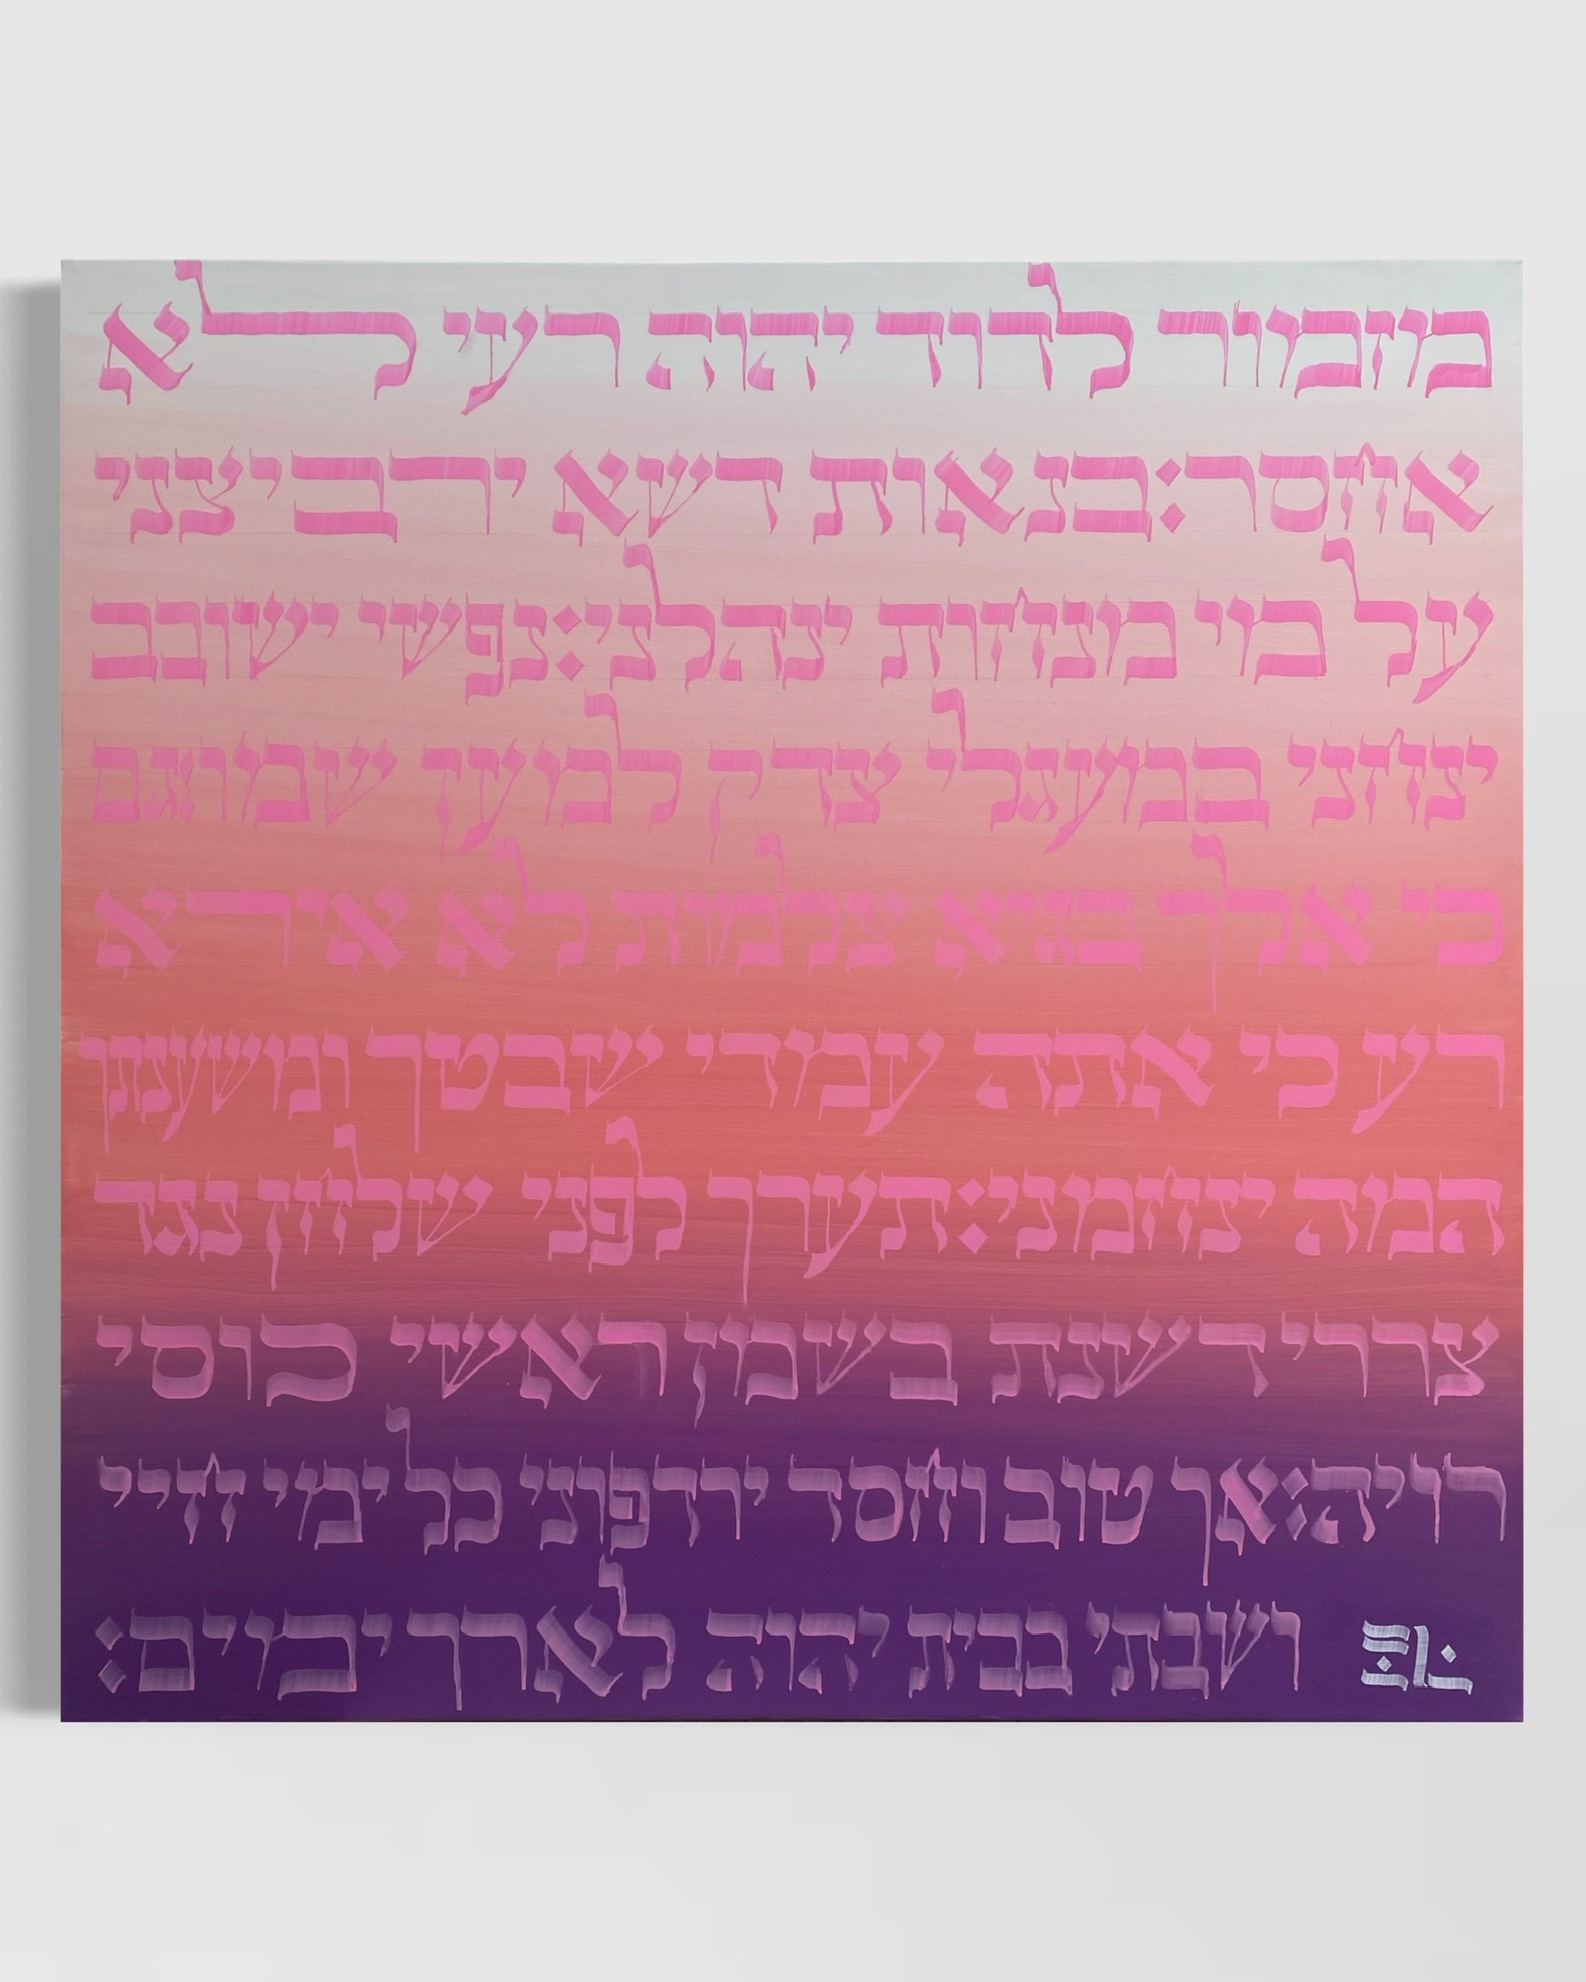 מזמור לדוד יהוה רעי לא
אחסר:בנאות דשא ירביצני
על מי מנחות ינהלני:נפשי ישובב
ינחני במעגלי צדק למען שמו:גם
כי אלך בגיא צלמות לא אירא
רע כי אתה עמדי שבטך ומשענתך
המה ינחמני:תערך לפני שלחן נגד
צררי דשנת בשמן ראשי כוסי
רויה:אך טוב וחסד ירדפוני כל ימי חיי
ושבתי בבית יהוה לארך ימים:
EL